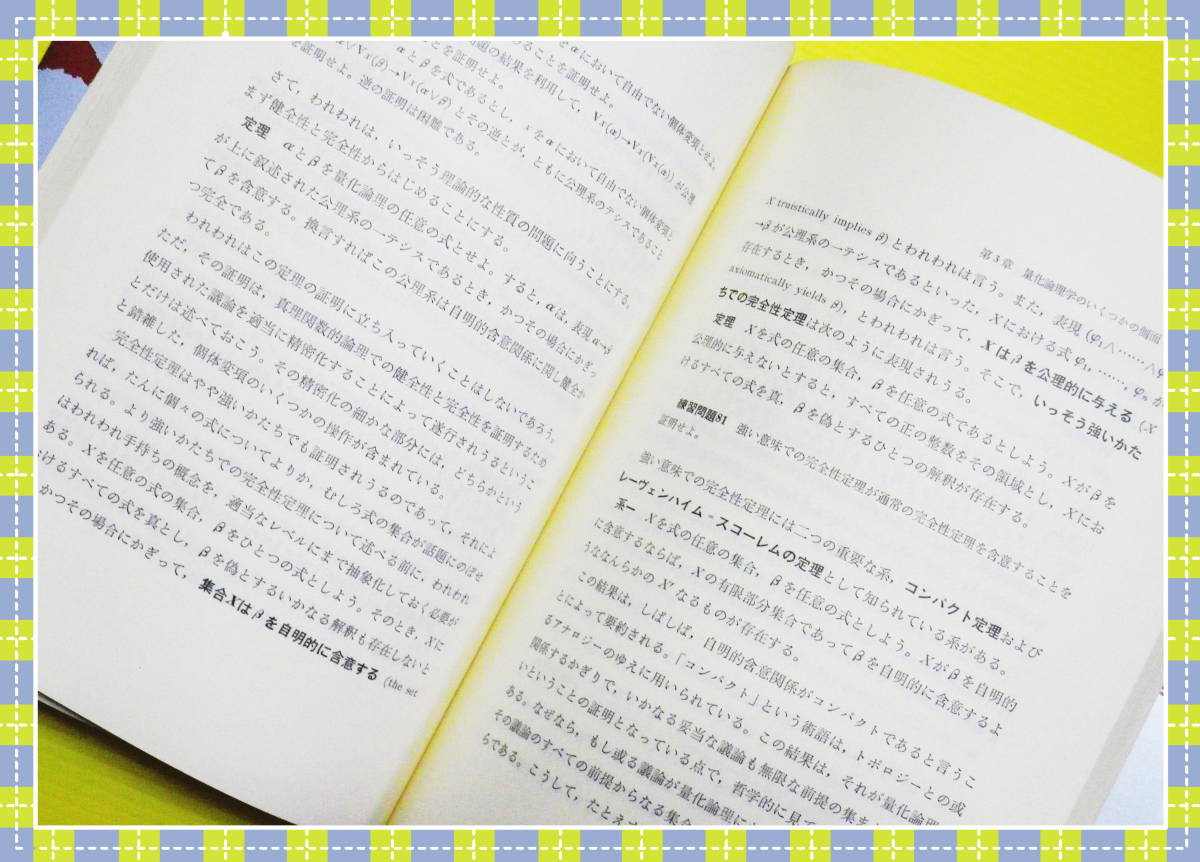 をαにおいて自由でない個体変項とせよ。
あることを証明せよ。
題の結果を利用して、∀x(α)→∀x(∀x(α))が公理
αとβを式であるとし、xをαにおいて自由でない個体変項と
∨∀x(β)→∀x(α∨β)とその逆とが、ともに公理系のテシスであること
を証明せよ。逆の証明は困難である。
さて、われわれは、いっそう理論的な性質の問題に向うことにする。
まず健全性と完全性からはじめることにする。
定理 αとβを量化論理の任意の式とせよ。すると、αは、表現α→β
が上に叙述された公理系の一テシスであるとき、かつその場合にかぎっ
てβを含意する。換言すればこの公理系は自明的含意関係に関し健全か
つ完全である。
われわれはこの定理の証明に立ち入っていくことはしないであろう。
ただ、その証明は、真理関数的論理での健全性と完全性を証明するため
使用された議論を適当に精密化することによって遂行されうるというこ
とだけは述べておこう。その精密化の細かな部分には、どちらかという
と錯雑した、個体変項のいくつかの操作が含まれている。
完全性定理はやや強いかたちでも証明されうるのであって、それによ
れば、たんに個々の式についてよりか、むしろ式の集合が話題にのぼせ
られる。より強いかたちでの完全性定理について述べる前に、われわれ
はわれわれ手持ちの概念を、適当なレベルにまで抽象化しておく必要が
ある。Xを任意の式の集合、βをひとつの式としよう。そのとき、Xに
おけるすべての式を真とし、βを偽とするいかなる解釈も存在しないと
かつその場合にかぎって、集合Xはβを自明的に含意する (the set
第3章 量化論理学のいくつかの側面
X traistically implies β)とわれわれは言う。また、表現(φ₁∧……∧φ
→βが公理系の一テシスであるといった、Xにおける式φ₁,……,φₙが
存在するとき、かつその場合にかぎって、Xはβを公理的に与える (X
axiomatically yields β)、とわれわれは言う。そこで、いっそう強いかた
ちでの完全性定理は次のように表現されうる。
定理 Xを式の任意の集合、βを任意の式であるとしよう。Xがβを
公理的に与えないとすると、すべての正の整数をその領域とし、Xにお
けるすべての式を真、βを偽とするひとつの解釈が存在する。
練習問題81 強い意味での完全性定理が通常の完全性定理を含意することを
証明せよ。
強い意味での完全性定理には二つの重要な系、コンパクト定理および
レーヴェンハイム=スコーレムの定理として知られている系がある。
系一 Xを式の任意の集合、βを任意の式としよう。Xがβを自明的
に含意するならば、Xの有限部分集合であってβを自明的に含意するよ
うななんらかのX'なるものが存在する。
この結果は、しばしば、自明的含意関係がコンパクトであると言うこ
とによって要約される。「コンパクト」という術語は、トポロジーとの或
るアナロジーのゆえに用いられている。この結果は、それが量化論理
関係するかぎりで、いかなる妥当な議論も無限な前提の集ま
いということの証明となっている点で、哲学的に見て
ある。なぜなら、もし或る議論が量化論理に
その議論のすべての前提からなる集合
らである。こうして、たとえ